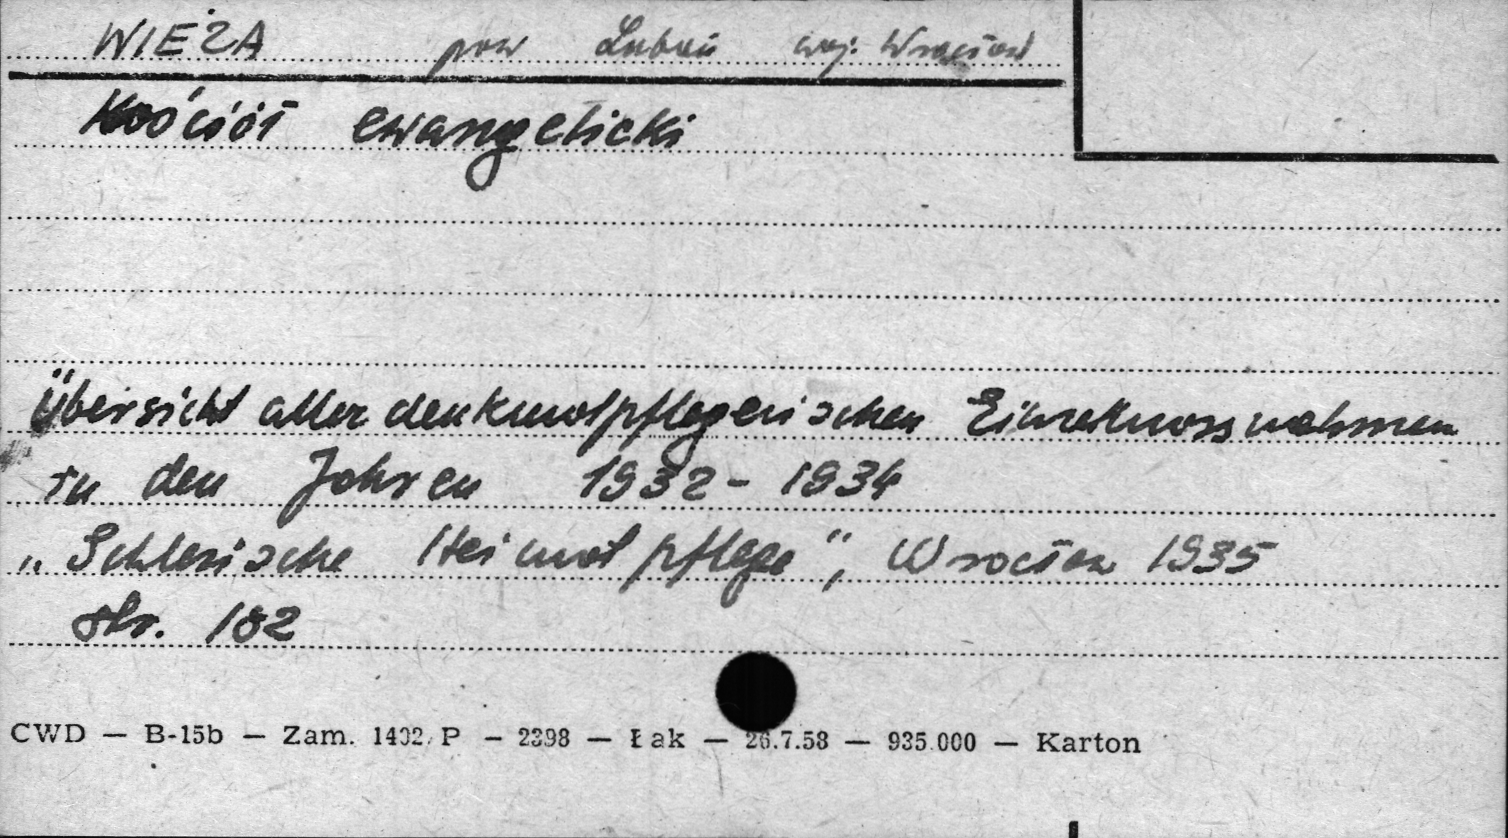 WIEŻA pow Lubań woj. Wrocław
Kościół ewangelicki
Übersicht aller denkmalpflegerischen Einzelmassnahmen
in den Jahren 1932 - 1934
„Schlesische Heimatpflege", Wrocław 1935
str. 182
CWD — B-15b — Zam. 1402/P — 2398 — Łak — 26.7.58 — 935.000 — Karton